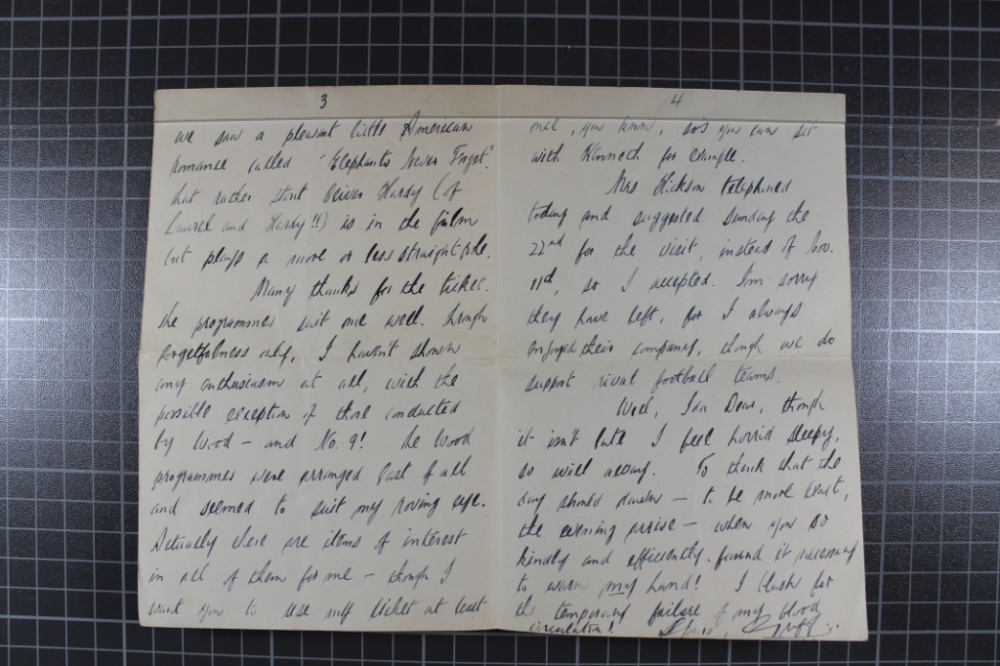 3
we saw a pleasant little American
Romance called "Elephants Never Forget."
that rather stout Oliver Hardy (of
Laurel and Hardy!!) is in the film
but plays a more or less straight role.
Many thanks for the ticket.
The programmes suit me well. Through
forgetfulness only, I haven't shown
any enthusiasm at all, with the
possible exception of those conducted
by Wood – and No. 9! The Wood
programmes were arranged last of all
and seemed to suit my roving eye.
Actually there are items of interest
in all of them for me – though I
want you to use my ticket at least
4
once, you know, so's you can sit
with Kenneth for example.
Mrs Hickson telephoned
today and suggested Sunday the
22nd for the visit, instead of Nov.
11th, so I accepted. I'm sorry
they have left, for I always
enjoyed their company, though we do
support rival football teams.
Well, Dear, though
it isn't late I feel horrid sleepy,
so will away. To think that the
day should dawn – to be more exact,
the evening arrive – when you so
kindly and efficiently found it necessary
to warm my hand! I blush for
the temporary failure of my blood
circulation!